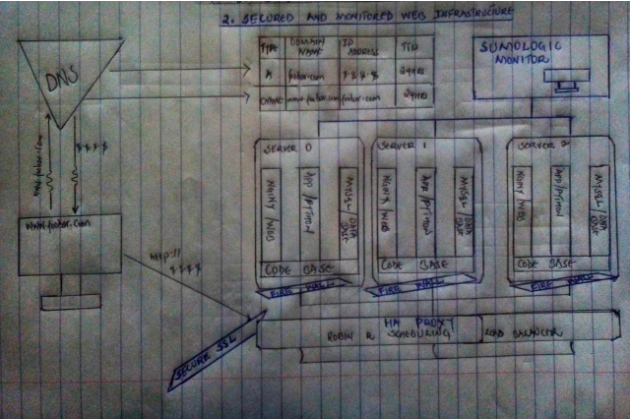 2. SECURED AND MONITORED WEB INFRASTRUCTURE
DNS
TYPE DOMAIN NAME IP ADDRESS TTL
A foobar.com 8.8.8.8 24HRS
CNAME www.foobar.com foobar.com 24HRS
SUMOLOGIC
MONITOR
www.foobar.com
8.8.8.8
www.foobar.com
http://
8.8.8.8
SERVER 0
NGINX/WEB
APP/PYTHON
MYSQL/DATA
BASE
CODE BASE
FIRE WALL
SERVER 1
NGINX/WEB
APP/PYTHON
MYSQL/DATA
BASE
CODE BASE
FIRE WALL
SERVER 2
NGINX/WEB
APP/PYTHON
MYSQL/DATA
BASE
CODE BASE
FIRE WALL
SECURE SSL
HA PROXY
ROBIN R SCHEDURING LOAD BALANCER